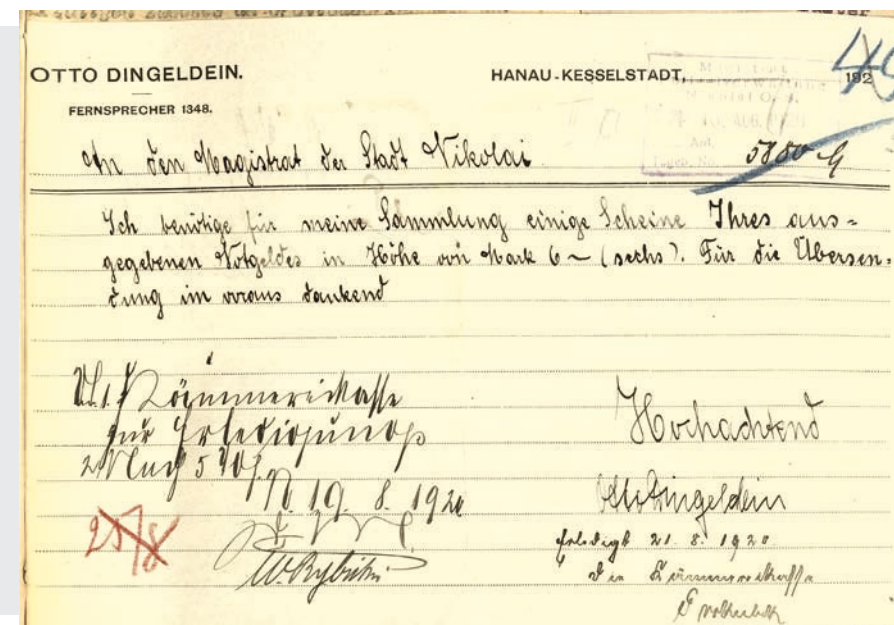 OTTO DINGELDEIN.
FERNSPRECHER 1348.
HANAU-KESSELSTADT, 192
An den Magistrat der Stadt Nikolai
5880
Ich benötige für meine Sammlung einige Scheine Ihres aus-
gegebenen Notgeldes in Höhe von Mark 6 ~ (sechs). Für die Übersen-
dung im voraus dankend
Hochachtend
Otto Dingeldein
Kämmereikasse
zur Erledigung
N. 19. 8. 1920
25/8
Erledigt 21. 8. 1920
Die Kämmereikasse